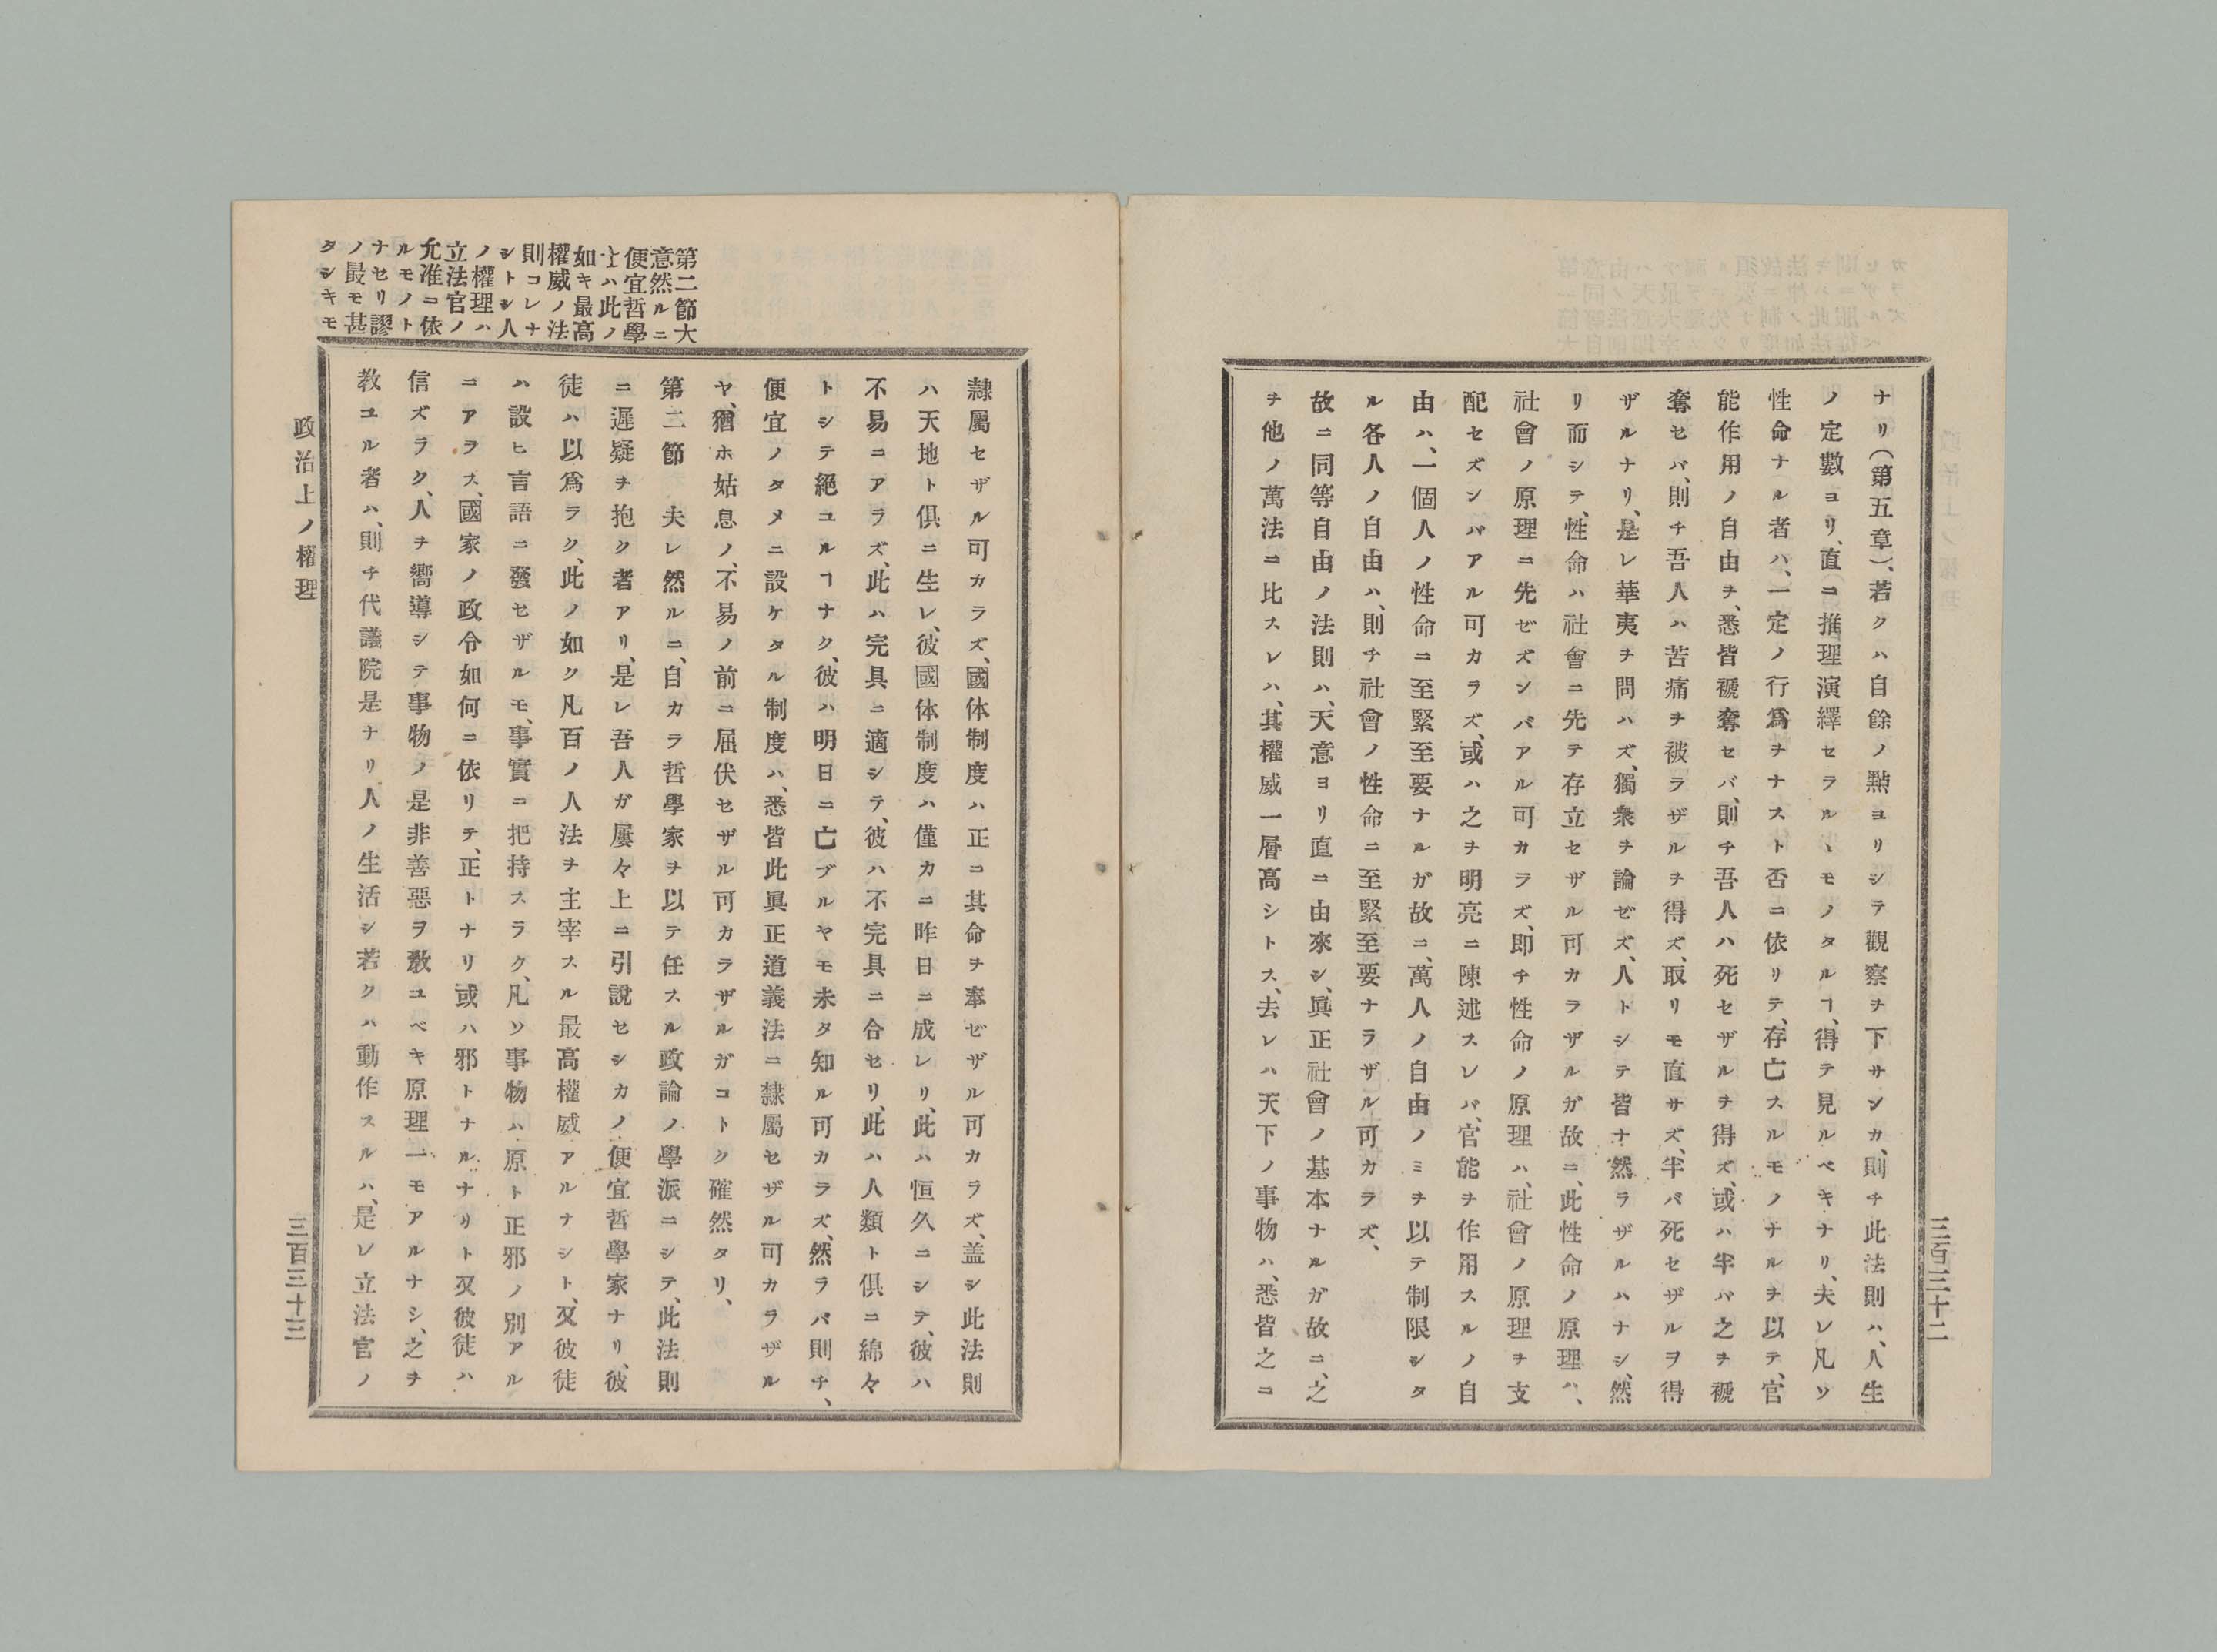 三百三十二
ナリ(第五章)、若クハ自餘ノ㸃ヨリシテ觀察ヲ下サンカ、則チ此法則ハ、人生
ノ定數ヨリ、直ニ推理演繹セラルヽモノタルヿ、得テ見ルベキナリ、夫レ凡ソ
性命ナル者ハ、一定ノ行爲ヲナスト否ニ依リテ、存亡スルモノナルヲ以テ、官
能作用ノ自由ヲ、悉皆褫奪セバ、則チ吾人ハ死セザルヲ得ズ、或ハ半バ之ヲ褫
奪セバ、則チ吾人ハ苦痛ヲ被ラザルヲ得ズ、取リモ直サズ、半バ死セザルヲ得
ザルナリ、是レ華夷ヲ問ハズ、獨衆ヲ論ゼズ、人トシテ皆ナ然ラザルハナシ、然
リ而シテ、性命ハ社會ニ先テ存立セザル可カラザルガ故ニ、此性命ノ原理ハ、
社會ノ原理ニ先ゼズンバアル可カラズ、即チ性命ノ原理ハ、社會ノ原理ヲ支
配セズンバアル可カラズ、或ハ之ヲ明亮ニ陳述スレバ、官能ヲ作用スルノ自
由ハ、一個人ノ性命ニ至緊至要ナルガ故ニ、萬人ノ自由ノミヲ以テ制限シタ
ル各人ノ自由ハ、則チ社會ノ性命ニ至緊至要ナラザル可カラズ、
故ニ同等自由ノ法則ハ、天意ヨリ直ニ由來シ、眞正社會ノ基本ナルガ故ニ、之
ヲ他ノ萬法ニ比スレハ、其權威一層高シトス、去レハ天下ノ事物ハ、悉皆之ニ
隷屬セザル可カラズ、國体制度ハ正ニ其命ヲ奉ゼザル可カラズ、盖シ此法則
ハ天地ト俱ニ生レ、彼國体制度ハ僅カニ昨日ニ成レリ、此ハ恒久ニシテ、彼ハ
不易ニアラズ、此ハ完具ニ適シテ、彼ハ不完具ニ合セリ、此ハ人類ト俱ニ綿々
トシテ絕ユルヿナク、彼ハ明日ニ亡ブルヤモ未タ知ル可カラズ、然ラバ則チ、
便宜ノタメニ設ケタル制度ハ、悉皆此眞正道義法ニ隸屬セザル可カラザル
ヤ、猶ホ姑息ノ、不易ノ前ニ屈伏セザル可カラザルガコトク確然タリ、
第二節　夫レ然ルニ、自カラ哲學家ヲ以テ任スル政論ノ學派ニシテ、此法則
ニ遲疑ヲ抱ク者アリ、是レ吾人ガ屢々上ニ引說セシカノ便宜哲學家ナリ、彼
徒ハ以爲ラク、此ノ如ク凡百ノ人法ヲ主宰スル最高權威アルナシト、又彼徒
ハ設ヒ言語ニ發セザルモ、事實ニ把持スラク、凡ソ事物ハ原ト正邪ノ別アル
ニアラス、國家ノ政令如何ニ依リテ、正トナリ或ハ邪トナルナリト又彼徒ハ
信ズラク、人ヲ嚮導シテ事物ノ是非善惡ヲ敎ユベキ原理一モアルナシ、之ヲ
教ユル者ハ、則チ代議院是ナリ人ノ生活シ若クハ動作スルハ、是レ立法官ノ
第二節大
意然ルニ
便宜哲學
士ハ此ノ
如キ最高
權威ノ法
則コレナ
シトシ人
ノ權理ハ
立法官ノ
允准ニ依
ルモノト
ナセリ謬
ノ最モ甚
タシキモ
政治上ノ權理
三百三十三